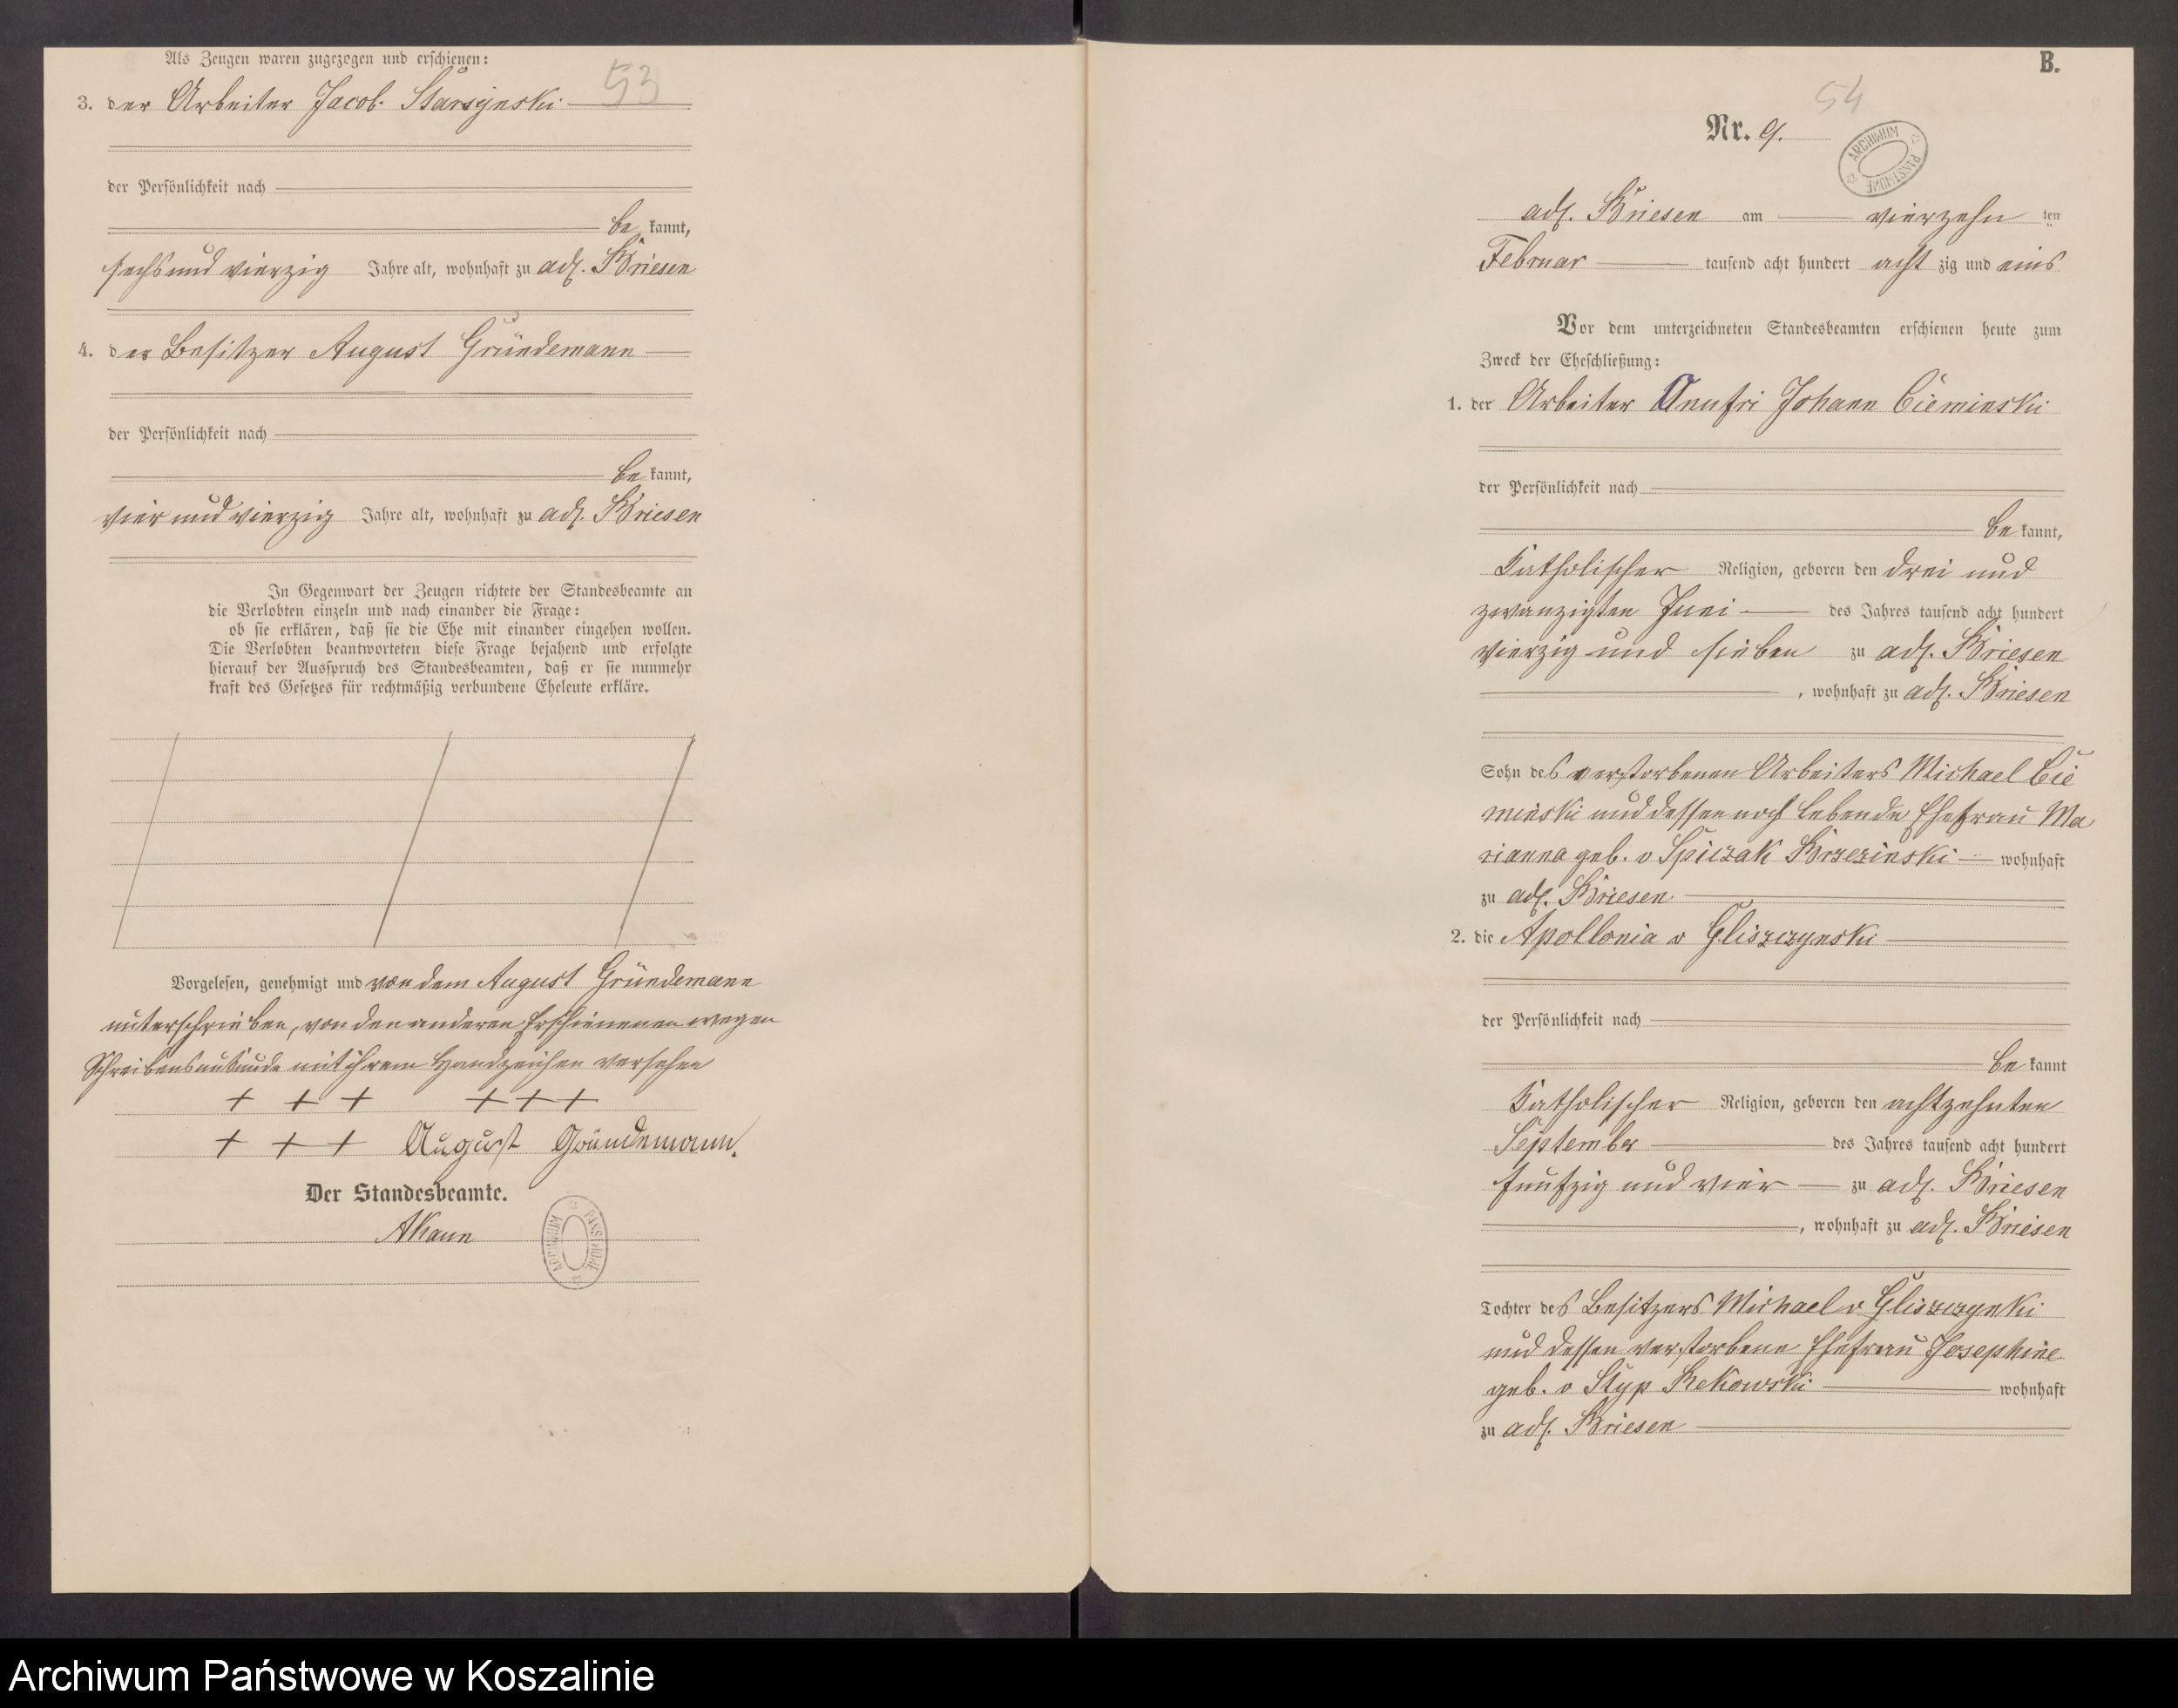 Als Zeugen waren zugezogen und erschienen:
53
3. der Arbeiter Jacob Starsynski
der Persönlichkeit nach
be kannt,
sechsundvierzig Jahre alt, wohnhaft zu adl. Briesen
4. der Besitzer August Gründemann
der Persönlichkeit nach
be kannt,
vierundvierzig Jahre alt, wohnhaft zu adl. Briesen
In Gegenwart der Zeugen richtete der Standesbeamte an
die Verlobten einzeln und nach einander die Frage:
ob sie erklären, daß sie die Ehe mit einander eingehen wollen.
Die Verlobten beantworteten diese Frage bejahend und erfolgte
hierauf der Ausspruch des Standesbeamten, daß er sie nunmehr
kraft des Gesetzes für rechtmäßig verbundene Eheleute erkläre.
Vorgelesen, genehmigt und von dem August Gründemann
unterschrieben, von den anderen Erschienenen wegen
Schreibensunkunde mit ihrem Handzeichen versehen
+ + + + + +
+ + + August Gründemann.
Der Standesbeamte.
AKann
ARCHIWUM PAŃSTWOWE
B.
54
Nr. 9.
ARCHIWUM PAŃSTWOWE
adl. Briesen am vierzehn ten
Februar tausend acht hundert acht zig und eins
Vor dem unterzeichneten Standesbeamten erschienen heute zum
Zweck der Eheschließung:
1. der Arbeiter Onufri Johann Cieminski
der Persönlichkeit nach
be kannt,
katholischer Religion, geboren den drei und
zwanzigsten Juni des Jahres tausend acht hundert
vierzig und sieben zu adl. Briesen
, wohnhaft zu adl. Briesen
Sohn des verstorbenen Arbeiters Michael Cie
minski und dessen noch lebende Ehefrau Ma
rianna geb. v Spiczak Brzezinski wohnhaft
zu adl. Briesen
2. die Apollonia v Gliszczynski
der Persönlichkeit nach
be kannt
katholischer Religion, geboren den achtzehnten
September des Jahres tausend acht hundert
funfzig und vier zu adl. Briesen
, wohnhaft zu adl. Briesen
Tochter des Besitzers Michael v Gliszczynki
und dessen verstorbene Ehefrau Josephine
geb. v Styp Rekowski wohnhaft
zu adl. Briesen
Archiwum Państwowe w Koszalinie